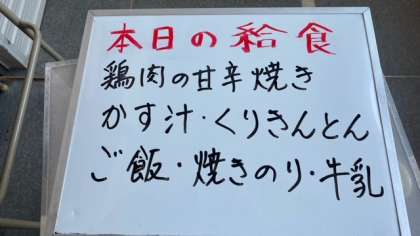 本日の給食
鶏肉の甘辛焼き
かす汁・くりきんとん
ご飯・焼きのり・牛乳